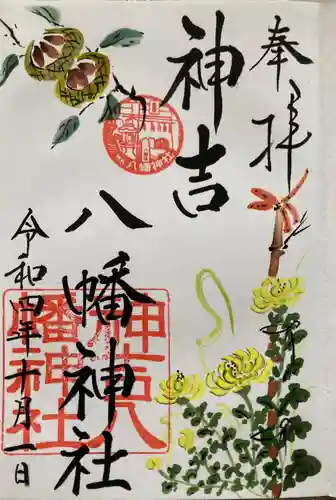 奉拝
神吉
八幡神社
令和四年十月一日
神吉八
幡神社